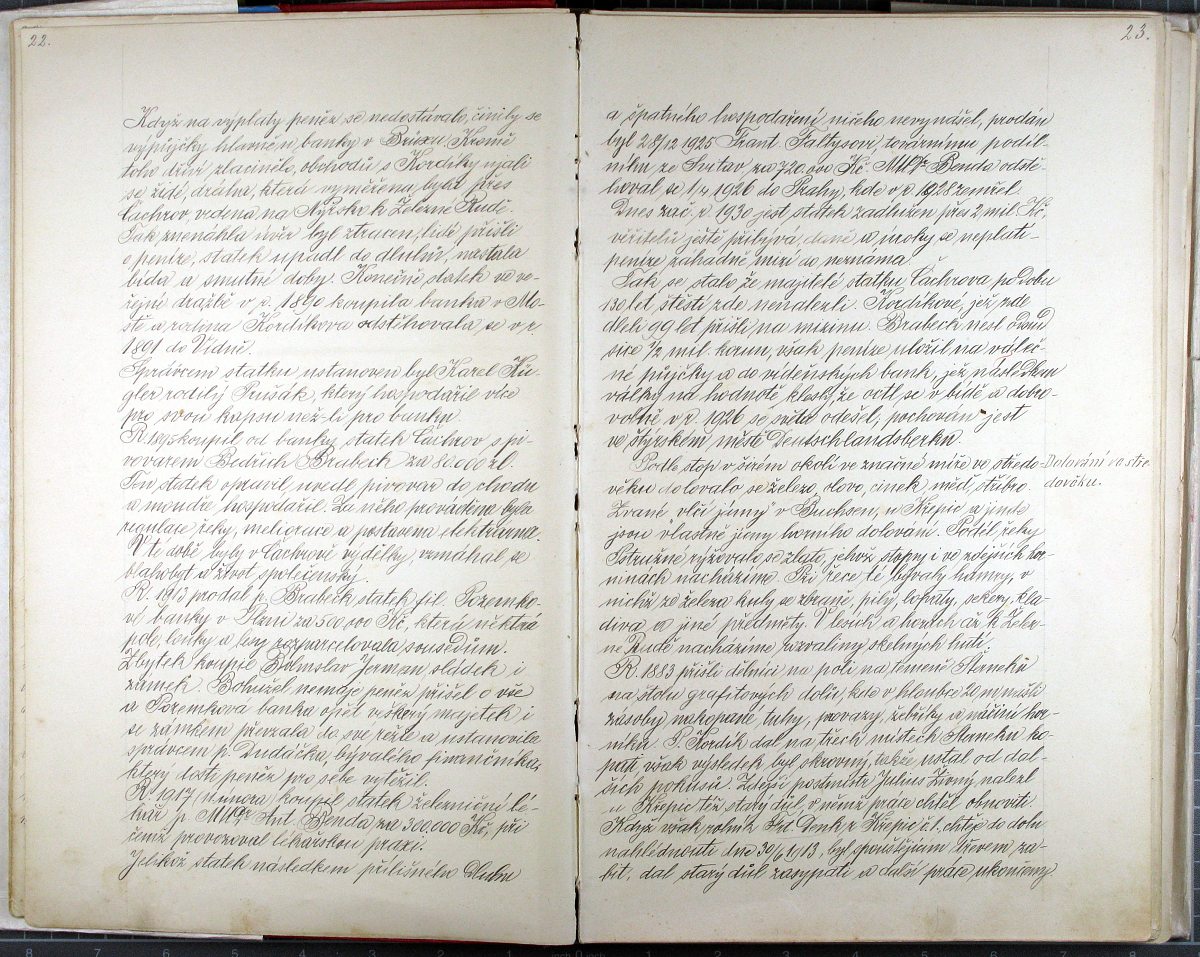 22.
Když na výplaty peněz se nedostávalo, činily se
výpůjčky hlavně u banky v Brüxu. Kromě
toho dříví zlacinělo, obchodů s Kordíky ujali
se židé, dráha, která vyměřena byla přes
Čachrov vedena na Nýrsko k Železné Rudě.
Tak znenáhla úvěr byl ztracen, lidé přišli
o peníze, statek upadl do dluhův, nastala
bída a smutné doby. Konečně statek ve ve-
řejné dražbě v r. 1890 koupila banka v Mo-
stě a rodina Kordíkova odstěhovala se v r.
1891 do Vídně.
Správcem statku ustanoven byl Karel
rodilý Prušák, který hospodařil více
pro svou kapsu než-li pro banku.
R. koupil od banky statek Čachrov s pi-
vovarem Bedřich Brabeck za 80.000 zl.
Ten statek opravil uvedl pivovar do chodu
a moudře hospodařil. Za něho prováděna byla
regulace řeky, meliorace a postavena elektrárna.
V té době byly v Čachrově výdělky, vzmáhal se
blahobyt a život společenský.
R. 1913 prodal p. Brabeck statek fil. Pozemko-
vé banky v Plzni za 500.000 Kč, která některá
pole, louky a lesy rozparcelovala sousedům.
Zbytek koupil Bohuslav Jerman sládek i
zámek. Bohužel nemaje peněz přišel o vše
a Pozemková banka opět veškerý majetek i
se zámkem převzala do své režie a ustanovila
správcem p. Dudáčka, bývalého finančníka,
který dosti peněz pro sebe vytěžil.
R. 1917 (února) koupil statek železniční lé-
kař p. MUDr Ant. Benda za 300.000 Kč, při
čemž provozoval lékařskou praxi.
Jelikož statek následkem přílišného dluhu
23.
a špatného hospodaření ničeho nevynášel, prodán
byl 28/12 1925 Frant. Faltysovi, továrnímu podíl-
níku ze Svitav za 720.000 Kč. MUDr Benda odstě-
hoval se 1/4 1926 do Prahy, kde v r. 1928 zemřel.
Dnes zač. r. 1930 jest statek zadlužen přes 2 mil. Kč,
věřitelů ještě přibývá, daně a úroky se neplatí
peníze záhadně mizí do neznáma.
Tak se stalo že majitelé statku Čachrova po dobu
130 let štěstí zde nenalezli. Kordíkové, jež zde
dleli 99 let přišli na mizinu. Brabeck nesl odsud
sice 1/2 mil. korun, však peníze uložil na váleč-
né půjčky a do vídeňských bank, jež následkem
války na hodnotě klesly, že octl se v bídě a dobro-
volně v r. 1926 se světa odešel, pochován jest
ve štýrském městě Deutschlandsberku.
Podle stop v širém okolí ve značné míře ve středo-
věku dolovalo se železo, olovo, cinek, měď, stříbro.
Zvané „vlčí jámy" v Buchsen, u Křepic a jinde
jsou vlastně jámy horního dolování. Podél řeky
Ostružné rýžovalo se zlato, jehož stopy i ve zdejších ho-
ninách nacházíme. Při řece té bývaly hamry, v
nichž ze železa kuly se zbraně, pily, lopaty, sekery, kla-
diva a jiné předměty. V lesích a horách až k Želez-
né Rudě nacházíme rozvaliny skelných hutí.
R. 1883 přišli dělníci na poli na kameně Strneků
na štolu grafitových dolů, kde v hloubce 20 m našli
zásoby nakopané tuhy, provazy, žebříky a náčiní hor-
níků. P. Kordík dal na třech místech Strneku ko-
pati, však výsledek byl skrovný, takže ustal od dal-
ších pokusů. Zdejší postmistr Julius Živný nalezl
u Křepic též starý důl, v němž práce chtěl obnoviti.
Když však rolník Frt. Denk z Křepic č. 1. chtěje do dolu
nahlédnouti dne 30/6 1913, byl spouštějícím dřevem za-
bit, dal starý důl zasypati a další práce ukončeny.
Dolování ve stře-
dověku.